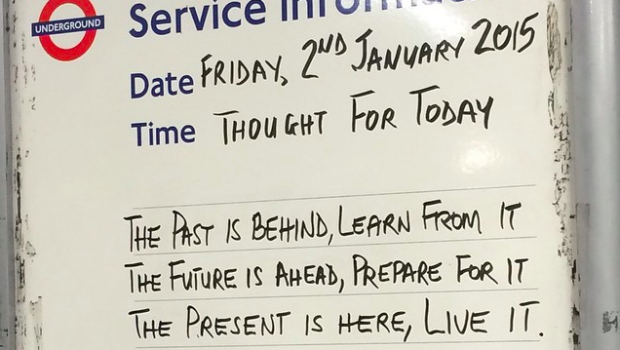 UNDERGROUND
Service Information
Date FRIDAY, 2ND JANUARY 2015
Time THOUGHT FOR TODAY
THE PAST IS BEHIND, LEARN FROM IT
THE FUTURE IS AHEAD, PREPARE FOR IT
THE PRESENT IS HERE, LIVE IT.